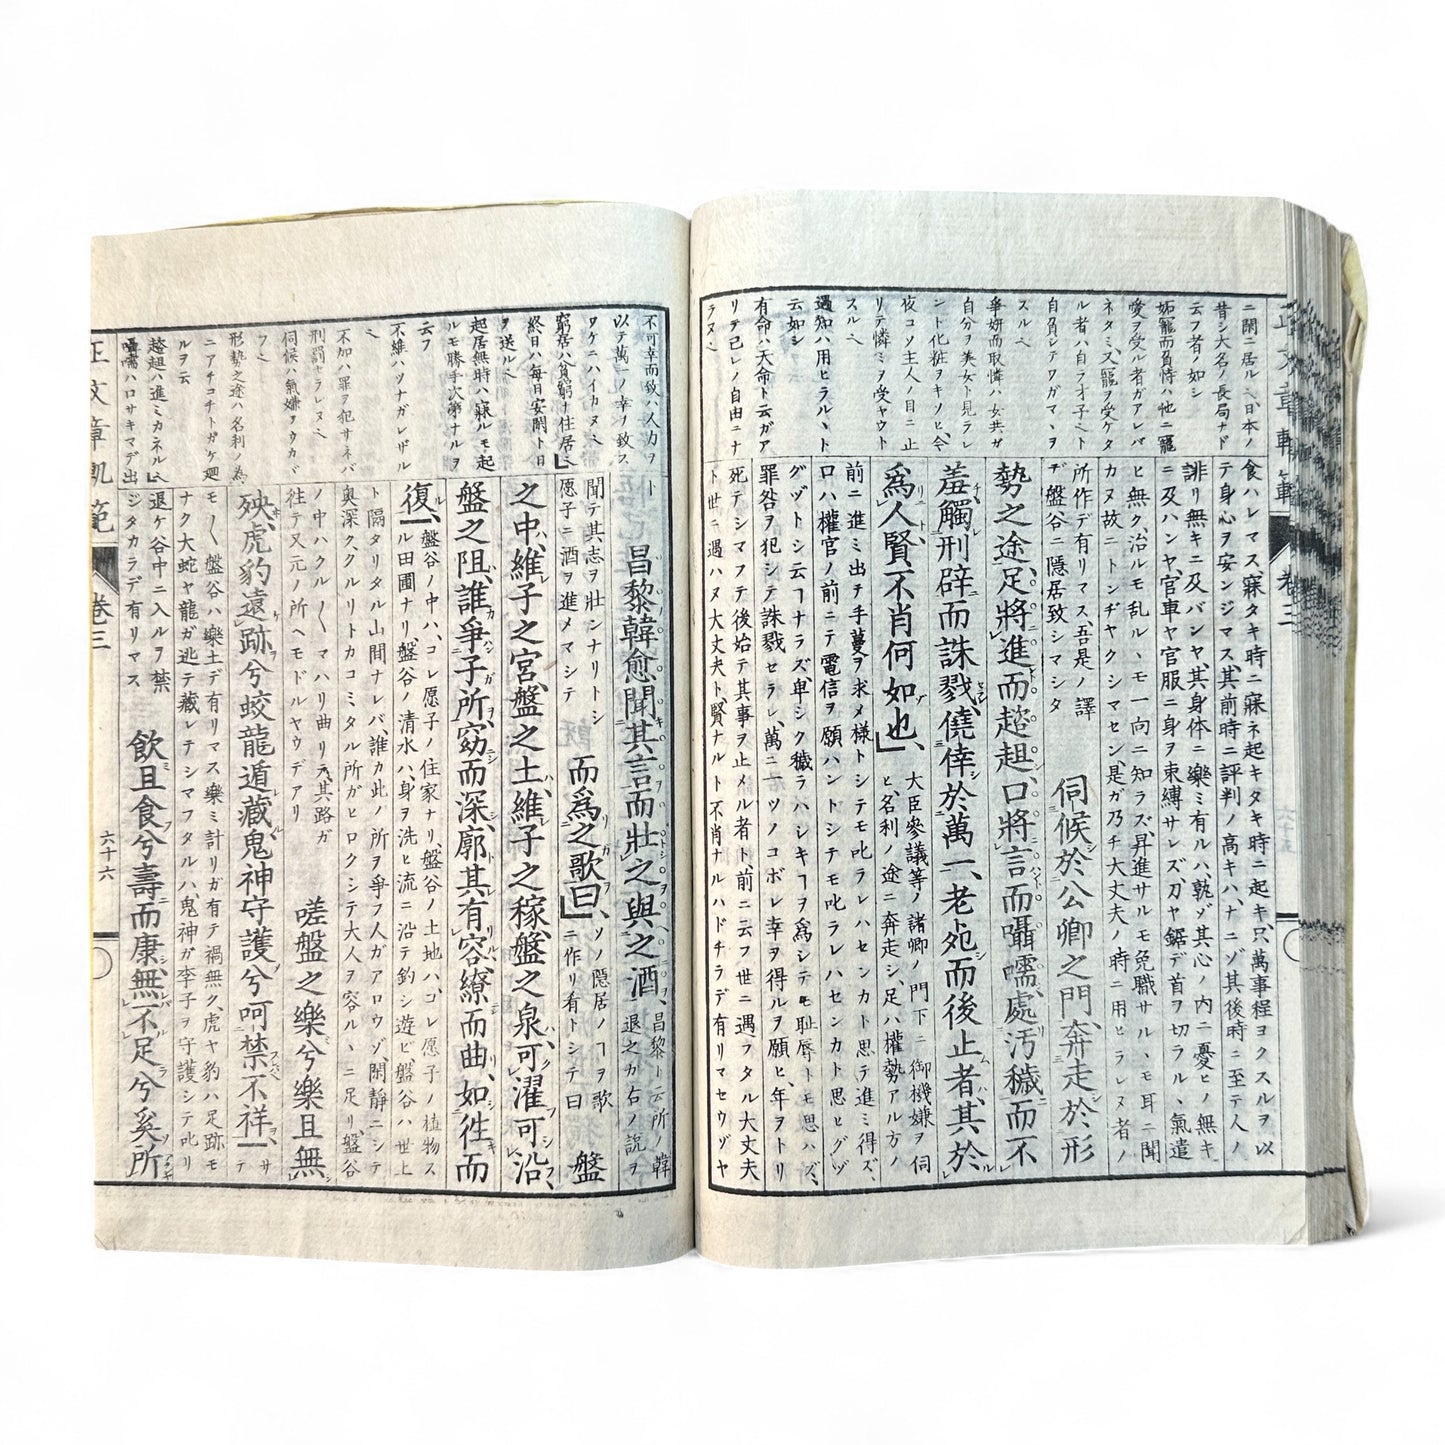 ニ閑ニ居ルヘ日本ノ
昔シ大名ノ長局ナド
云フ者ノ如シ
妬寵而負恃ハ他ニ寵
愛ヲ受ル者ガアレバ
ネタミ又寵ヲ受ケタ
ル者ハ自ラ才子ヘト
自負シテワガマヽヲ
スルヘ
爭妍而取憐ハ女共ガ
自分ヲ美女ト見ラレ
ント化粧ヲキソヒ今
夜コソ主人ノ目ニ止
リテ憐ミヲ受ヤウト
スルヘ
遇知ハ用ヒラルヽト
云如シ
有命ハ天命ト云ガア
リテ己レノ自由ニナ
ラヌヘ
食ハレマス寐タキ時ニ寐ネ起キタキ時ニ起キ只萬事程ヨクスルヲ以
テ身心ヲ安ンジマス其前時ニ評判ノ高キハナニゾ其後時ニ至テ人ノ
誹リ無キニ及バンヤ其身体ニ樂ミ有ルハ孰ゾ其心ノ内ニ憂ヒノ無キ
ニ及ハンヤ官車ヤ官服ニ身ヲ束縛サレズ刀ヤ鋸デ首ヲ切ラルヽ氣遣
ヒ無ク治ルモ乱ルヽモ一向ニ知ラズ昇進サルモ免職サルヽモ耳ニ聞
カヌ故ニトンヂヤクシマセン是ガ乃チ大丈夫ノ時ニ用ヒラレヌ者ノ
所作デ有リマス吾是ノ譯
ヂ盤谷ニ隱居致シマシタ
伺候於公卿之門奔走於形
勢之途足將進而趑趄口將言而囁嚅處汚穢而不
羞觸刑辟而誅戮僥倖於萬一老死而後止者其於
爲人賢不肖何如也
大臣參議等ノ諸卿ノ門下ニ御機嫌ヲ伺
ヒ名利ノ途ニ奔走シ足ハ權勢アル方ノ
前ニ進ミ出テ手蔓ヲ求メ様トシテモ叱ラレハセンカト思テ進ミ得ズ
口ハ權官ノ前ニテ電信ヲ願ハントシテモ叱ラレハセンカト思ヒグヅ
グヅトシ云ヿナラズ卑シク穢ラハシキヿヲ爲シテモ耻辱トモ思ハズ
罪咎ヲ犯シテ誅戮セラレ萬ニ一ツノコボレ幸ヲ得ルヲ願ヒ年ヲトリ
死テシマフテ後始テ其事ヲ止メル者ト前ニ云フ世ニ遇ヲタル大丈夫
ト世ニ遇ハヌ大丈夫ト賢ナルト不肖ナルハドチラデ有リマセウヅヤ
不可幸而致ハ人力ヲ
以テ萬一ノ幸ヲ致ス
ワケニハイカヌヘ
窮居ハ貧窮ナ住居ヘ
終日ハ每日安閑ト日
ヲ送ルヘ
起居無時ハ寐ルモ起
ルモ勝手次第ナルヲ
云フ
不維ハツナガレザル
ヘ
不加ハ罪ヲ犯サネバ
刑罰セラレヌヘ
伺候ハ氣嫌ヲウカヾ
フヘ
形勢之途ハ名利ノ為
ニアチコチトガケ廻
ルヲ云
趑趄ハ進ミカネルヘ
囁嚅ハ口サキマデ出
昌黎韓愈聞其言而壯之與之酒
昌黎ト云所ノ韓
退之カ右ノ說ヲ
聞テ其志ヲ壯ンナリトシ
愿子ニ酒ヲ進メマシテ
而爲之歌曰
ソノ隱居ノヿヲ歌
ニ作リ看トシテ曰
盤
之中維子之宮盤之土維子之稼盤之泉可濯可沿
盤之阻誰爭子所窈而深廓其有容繚而曲如徃而
復
盤谷ノ中ハコレ愿子ノ住家ナリ盤谷ノ土地ハコレ愿子ノ植物ス
ル田圃ナリ盤谷ノ清水ハ身ヲ洗ヒ流ニ沿テ釣シ遊ビ盤谷ハ世上
ト隔タリタル山間ナレバ誰カ此ノ所ヲ爭フ人ガアロウゾ閑靜ニシテ
奥深ククルリトカコミタル所ガヒロクシテ大人ヲ容ルヽニ足リ盤谷
ノ中ハクルヽマハリ曲リテ其路ガ
徃テ又元ノ所ヘモドルヤウデアリ
嗟盤之樂兮樂且無
殃虎豹遠跡兮蛟龍遁藏鬼神守護兮呵禁不祥
盤谷ハ樂土デ有リマス樂ミ計リガ有テ禍無ク虎ヤ豹ハ足跡モ
ナク大蛇ヤ龍ガ逃テ藏レテシマフタルハ鬼神ガ李子ヲ守護シテ叱リ
退ケ谷中ニ入ルヲ禁
ジタカラデ有リマス
飲且食兮壽而康無不足兮奚所
正文章軌範
卷三
六十六